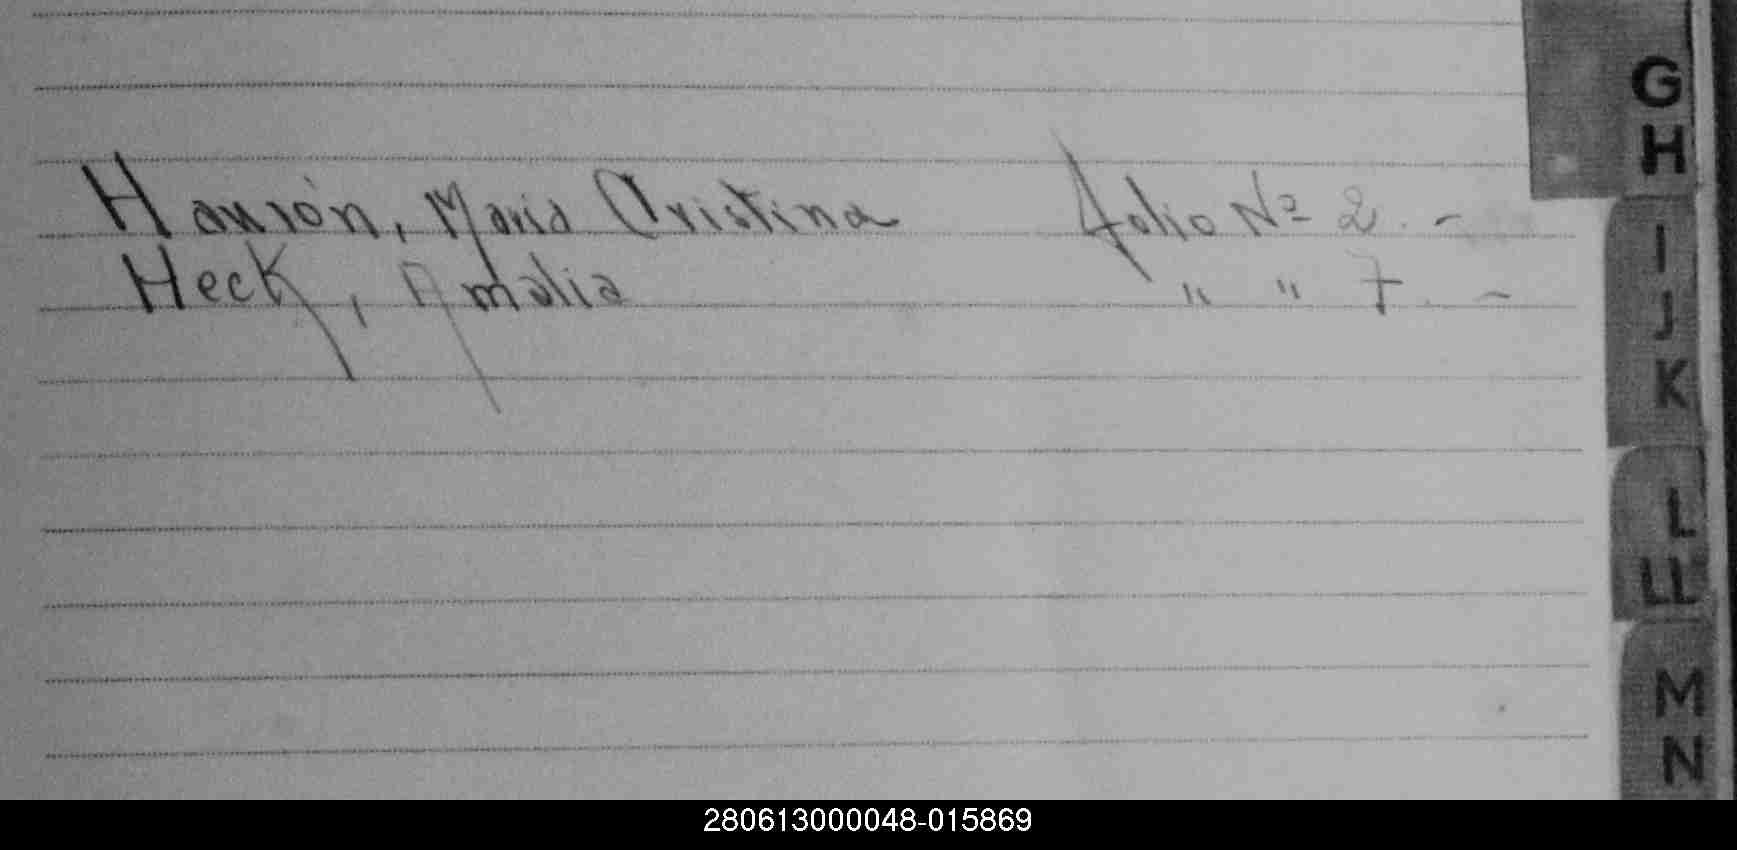 Hansón, Maria Cristina folio Nº 2. -
Heck, Amalia " " 7. -
G
H
I
J
K
L
LL
M
N
280613000048-015869